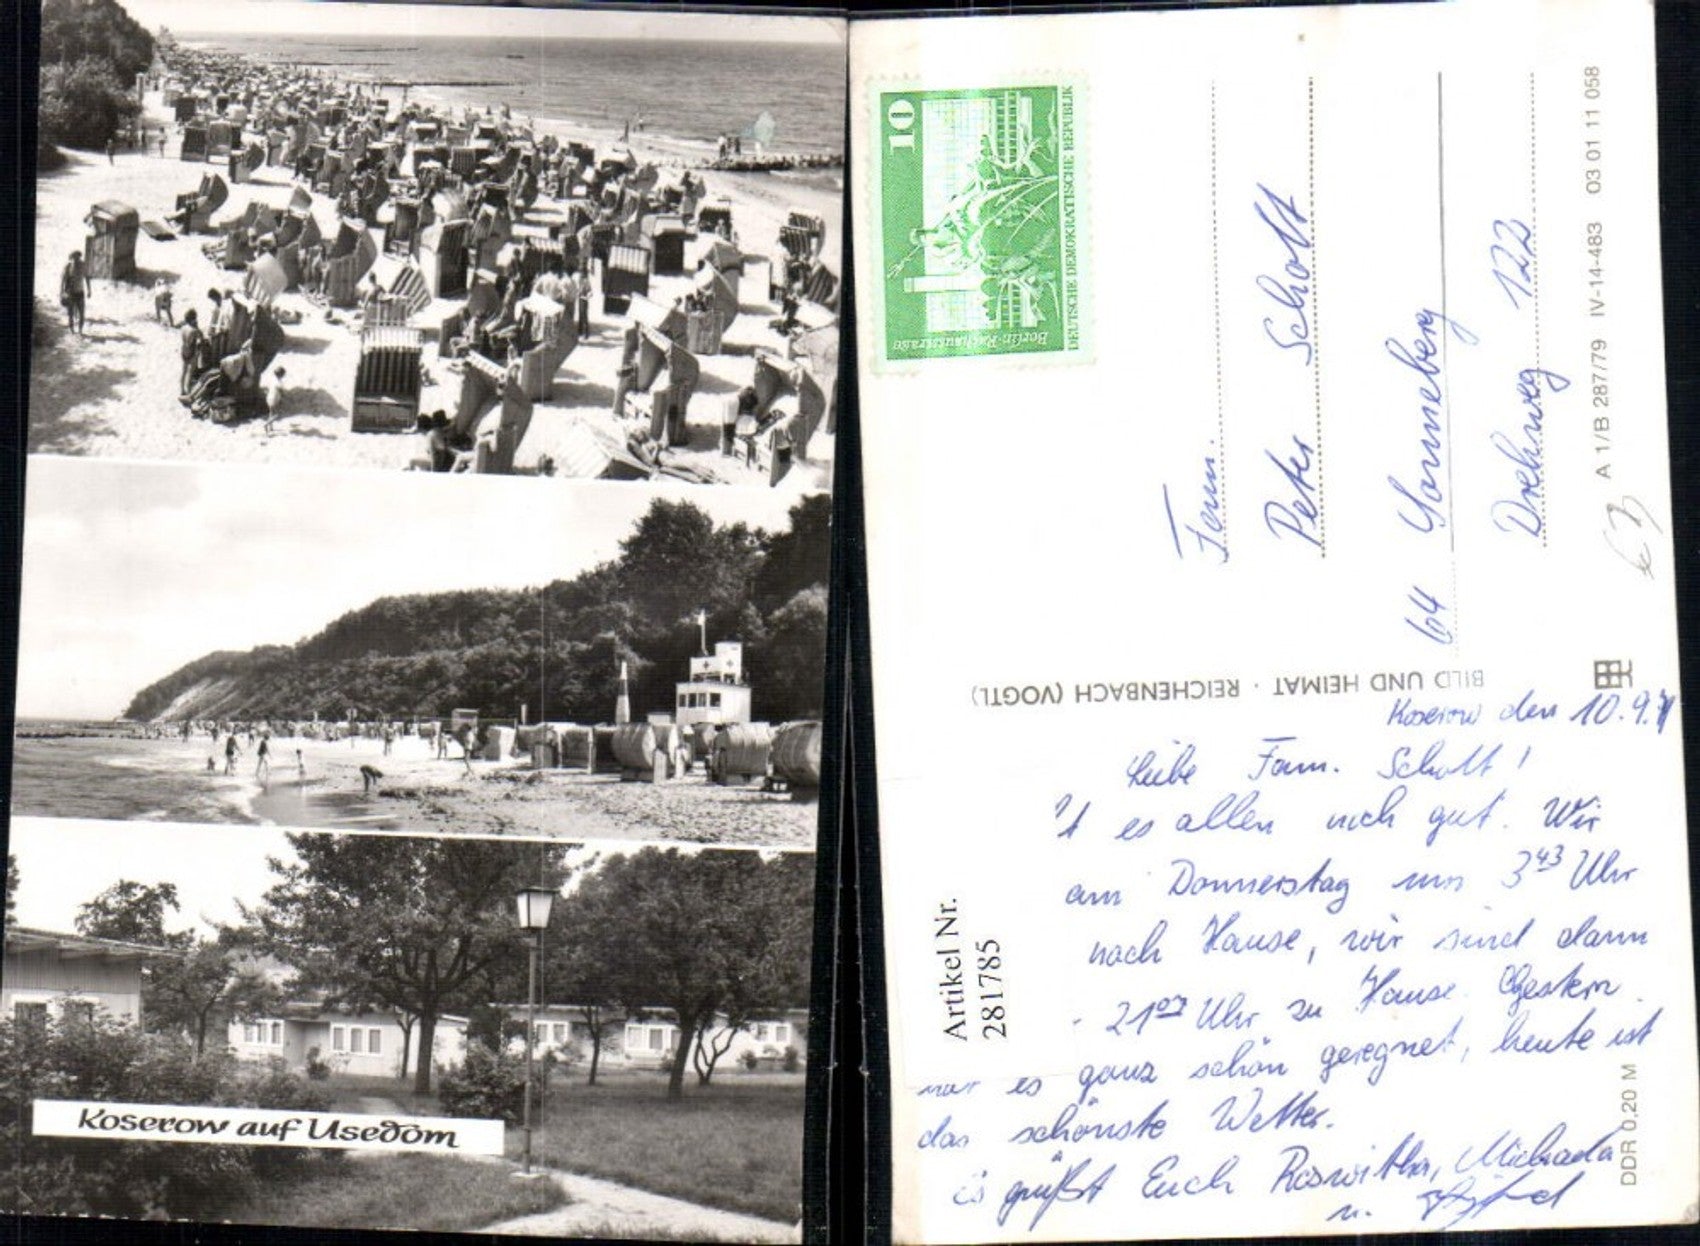 Koserow auf Usedom
10
DEUTSCHE DEMOKRATISCHE REPUBLIK
Berlin-Rathausstrasse
Fam.
Peter Schott
64 Sonneberg
Drehweg 122
A 1/B 287/79 IV-14-483 03 01 11 058
BILD UND HEIMAT · REICHENBACH (VOGTL)
Koserow den 10.9.
Liebe Fam. Schott!
es allen noch gut. Wir
am Donnerstag um 3 43 Uhr
nach Hause, wir sind dann
21 07 Uhr zu Hause. Gestern
war es ganz schön geregnet, heute ist
das schönste Wetter.
Es grüßt Euch Roswitha, Michaela
u.
Artikel Nr.
281785
DDR 0,20 M